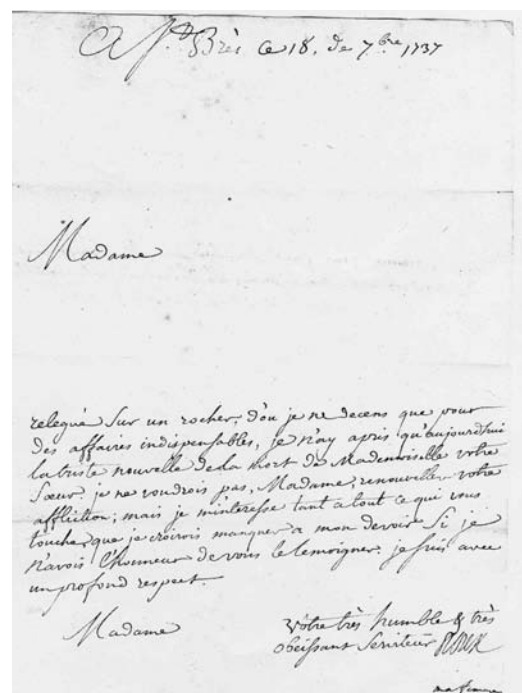 A St Brès ce 18. de 7.bre 1737
Madame
relegué sur un rocher, d'ou je ne decens que pour
des affaires indispensables, je n'ay apris qu'aujourd'hui
la triste nouvelle de la mort de Mademoiselle votre
soeur, je ne voudrois pas, Madame, renouveller votre
affliction; mais je m'interesse tant a tout ce qui vous
touche, que je croirois manquer a mon devoir si je
n'avois l'honneur de vous le temoigner. je suis avec
un profond respect.
Madame
Vôtre très humble & très
obeissant serviteur
ma femme